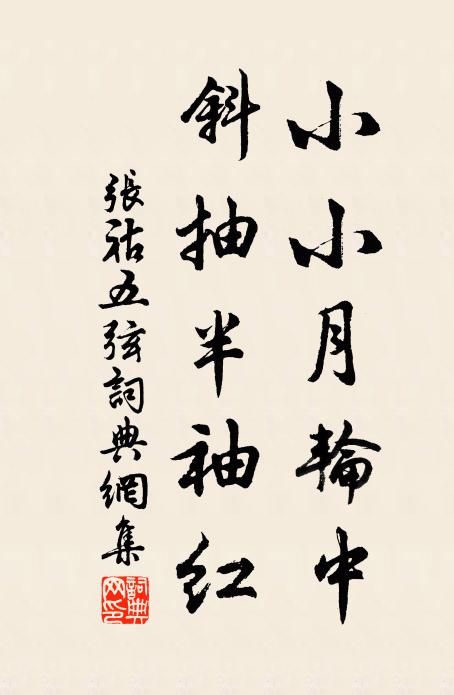 小小月輪中
斜抽半袖紅
張祜五弦詞典網集
詞典網印